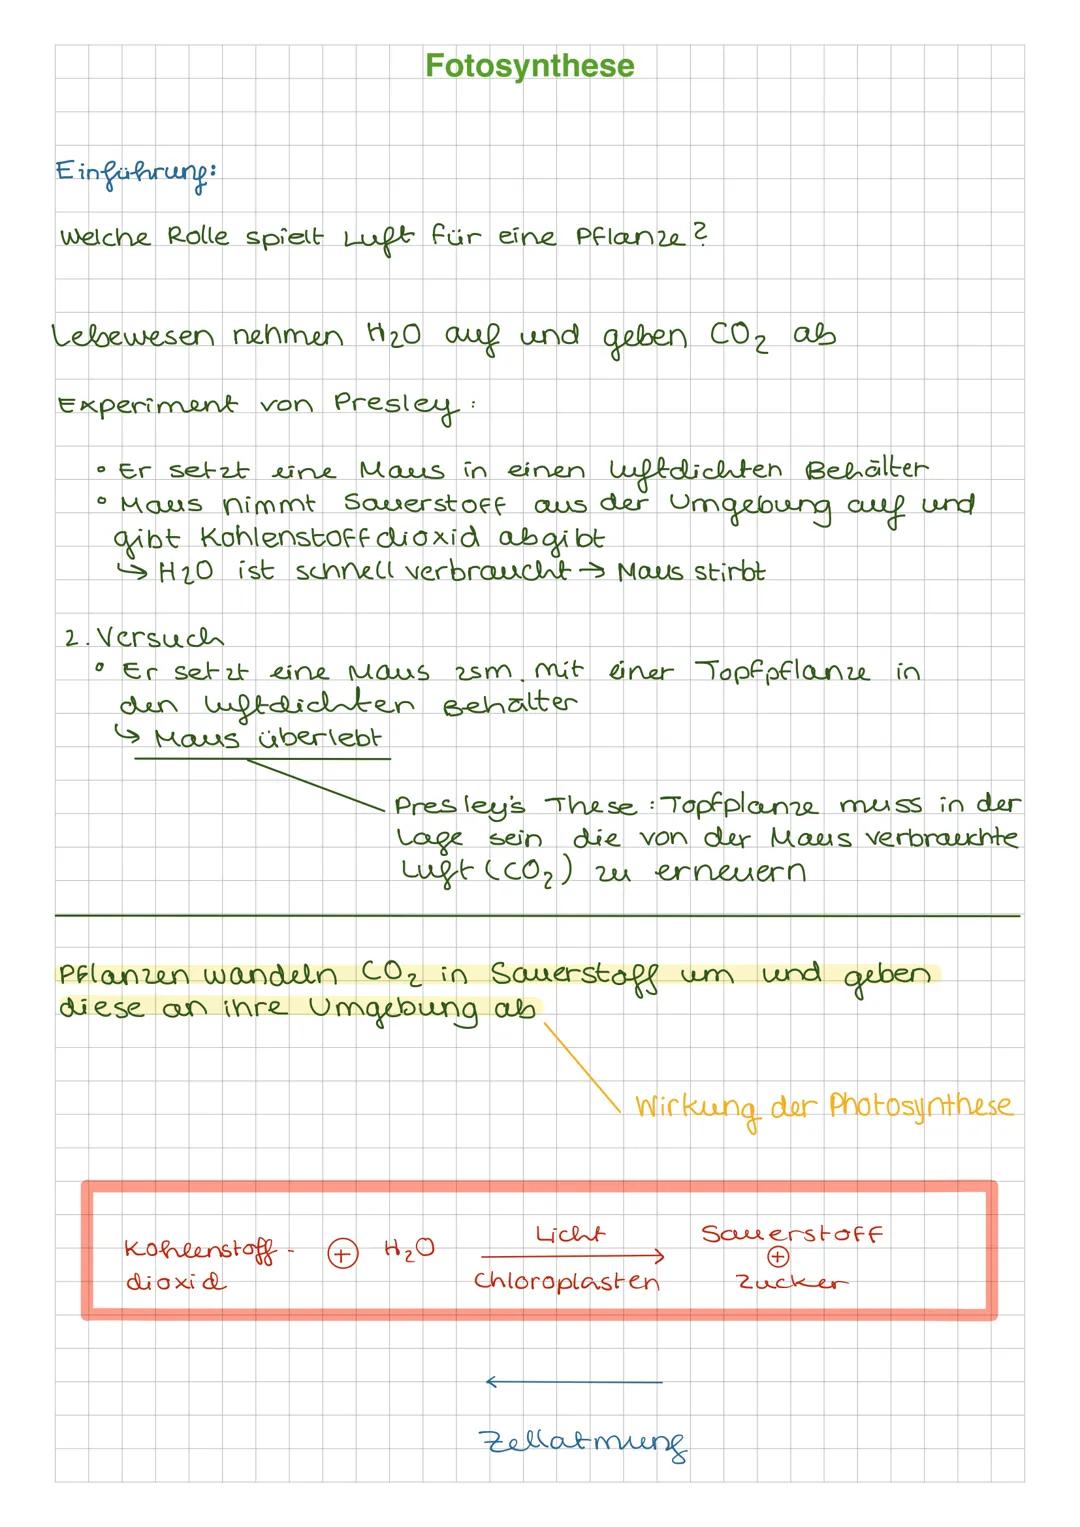 Fotosynthese
Einführung:
Welche Rolle spielt Luft für eine Pflanze?
Lebewesen nehmen H₂O auf und geben CO₂ ab
Experiment von Presley:
• Er setzt eine Maus in einen luftdichten Behälter
• Maus nimmt Sauerstoff aus der Umgebung auf und
gibt Kohlenstoffdioxid abgibt
↳ H₂O ist schnell verbraucht → Maus stirbt
2. Versuch
• Er setzt eine Maus zsm. mit einer Topfpflanze in
den luftdichten Behälter
↳ Maus überlebt
Presley's These: Topfplanze muss in der
Lage sein die von der Maus verbrauchte
Luft (CO₂) zu erneuern
Pflanzen wandeln CO₂ in Sauerstoff um und geben
diese an ihre Umgebung ab
Wirkung der Photosynthese
Kohlenstoff-
dioxid
⊕ H₂O
Licht
→
Chloroplasten
Sauerstoff
⊕
Zucker
←
Zellatmung